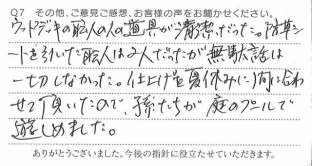 Q7 その他、ご意見ご感想、お客様の声をお聞かせください。
ウッドデッキの職人の人の道具が清潔だった。防草シ
ートを引いた職人は2人だったが無駄話は
一切しなかった。仕上げを夏休みに向に合わ
せて頂いたので、孫たちが庭のプールで
遊しめました。
ありがとうございました。今後の指針に役立たせていただきます。